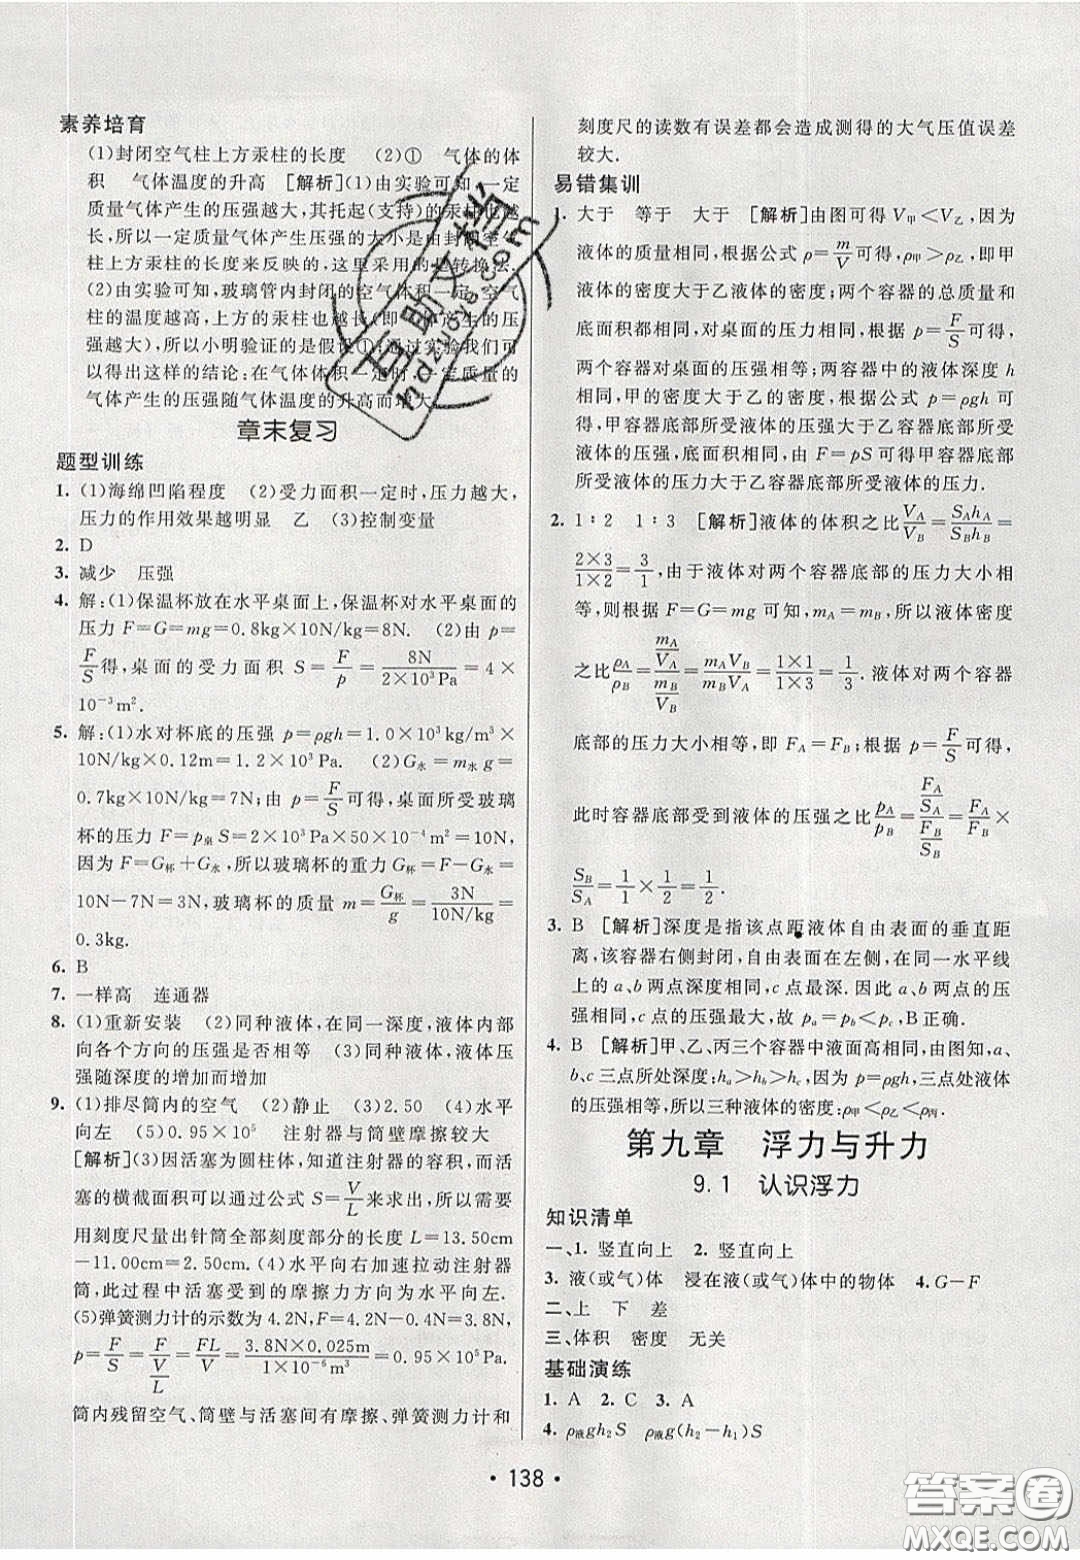 素养培育
(1)封闭空气柱上方汞柱的长度 (2)① 气体的体
积 气体温度的升高 [解析](1)由实验可知,一定
质量气体产生的压强越大,其托起(支持)的汞柱也越
长,所以一定质量气体产生压强的大小是由封闭空气
柱上方汞柱的长度来反映的,这里采用的是转换法.
(2)由实验可知,玻璃管内封闭的空气体积一定,空气
柱的温度越高,上方的汞柱也越长(即 产生的压
强越大),所以小明验证的是假设①;通过实验我们可
以得出这样的结论:在气体体积一定时,一定质量的
气体产生的压强随气体温度的升高而增大.
章末复习
题型训练
1. (1)海绵凹陷程度 (2)受力面积一定时,压力越大,
压力的作用效果越明显 乙 (3)控制变量
2. D
3. 减少 压强
4. 解:(1)保温杯放在水平桌面上,保温杯对水平桌面的
压力 F=G=mg=0.8kg×10N/kg=8N. (2)由 p=
F/S 得,桌面的受力面积 S=F/p=8N/(2×10³Pa)=4×
10⁻³m².
5. 解:(1)水对杯底的压强 p=ρgh=1.0×10³kg/m³×
10N/kg×0.12m=1.2×10³Pa. (2)G水=m水g=
0.7kg×10N/kg=7N;由 p=F/S 可得,桌面所受玻璃
杯的压力 F=p桌S=2×10³Pa×50×10⁻⁴m²=10N,
因为 F=G杯+G水,所以玻璃杯的重力 G杯=F-G水=
10N-7N=3N,玻璃杯的质量 m=G杯/g=3N/(10N/kg)=
0.3kg.
6. B
7. 一样高 连通器
8. (1)重新安装 (2)同种液体,在同一深度,液体内部
向各个方向的压强是否相等 (3)同种液体,液体压
强随深度的增加而增加
9. (1)排尽筒内的空气 (2)静止 (3)2.50 (4)水平
向左 (5)0.95×10⁵ 注射器与筒壁摩擦较大
[解析](3)因活塞为圆柱体,知道注射器的容积,而活
塞的横截面积可以通过公式 S=V/L 来求得,所以需要
用刻度尺量出针筒全部刻度部分的长度 L=13.50cm
-11.00cm=2.50cm. (4)水平向右加速拉动注射器
筒,此过程中活塞受到的摩擦力方向为水平向左.
(5)弹簧测力计的示数为4.2N,F=4.2N-0.4N=3.8N,
p=F/S=F/(V/L)=FL/V=(3.8N×0.025m)/(1×10⁻⁶m³)=0.95×10⁵Pa.
筒内残留空气、筒壁与活塞间有摩擦、弹簧测力计和
刻度尺的读数有误差都会造成测得的大气压值误差
较大.
易错集训
1. 大于 等于 大于 [解析]由图可得 V甲<V乙,因为
液体的质量相同,根据公式 ρ=m/V 可得,ρ甲>ρ乙,即甲
液体的密度大于乙液体的密度;两个容器的总质量和
底面积都相同,对桌面的压力相同,根据 p=F/S 可得,
两个容器对桌面的压强相等;两容器中的液体深度 h
相同,甲的密度大于乙的密度,根据公式 p=ρgh 可得
甲容器底部所受液体的压强大于乙容器底部所受
液体的压强,底面积相同,由 F=pS 可得甲容器底部
所受液体的压力大于乙容器底部所受液体的压力.
2. 1∶2 1∶3 [解析]液体的体积之比 V_A/V_B=S_Ah_A/S_Bh_B=
(2×3)/(1×2)=3/1,由于液体对两个容器底部的压力大小相
等,则根据 F=G=mg 可知,m_A=m_B,所以液体密度
之比 ρ_A/ρ_B=(m_A/V_A)/(m_B/V_B)=m_AV_B/m_BV_A=(1×1)/(1×3)=1/3. 液体对两个容器
底部的压力大小相等,即 F_A=F_B;根据 p=F/S 可得,
此时容器底部受到液体的压强之比 p_A/p_B=(F_A/S_A)/(F_B/S_B)=F_A/F_B×
S_B/S_A=1/1×1/2=1/2.
3. B [解析]深度是指该点距液体自由表面的垂直距
离,该容器右侧封闭,自由表面在左侧,在同一水平线
上的 a、b 两点深度相同,c 点最深. 因此 a、b 两点的压
强相同,c 点的压强最大,故 p_a=p_b<p_c,B 正确.
4. B [解析]甲、乙、丙三个容器中液面高相同,由图知,a、
b、c 三点所处深度:h_a>h_b>h_c,因为 p=ρgh,三点液体
的压强相等,所以三种液体的密度:ρ甲<ρ乙<ρ丙.
第九章 浮力与升力
9.1 认识浮力
知识清单
一、1. 竖直向上 2. 竖直向上
3. 液(或气)体 浸在液(或气)体中的物体 4. G-F
二、上 下 差
三、体积 密度 无关
基础演练
1. A 2. C 3. A
4. ρ液gh₂S ρ液g(h₂-h₁)S
· 138 ·
互助文档
hdzuoye.com
答案圈
MXQE.COM